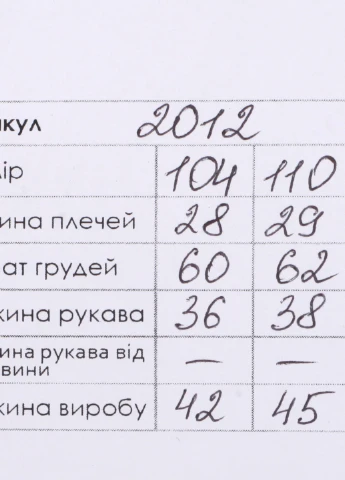 икул 2012
ір 104 110
ина плечей 28 29
ат грудей 60 62
жина рукава 36 38
ина рукава від
вини — —
жина виробу 42 45